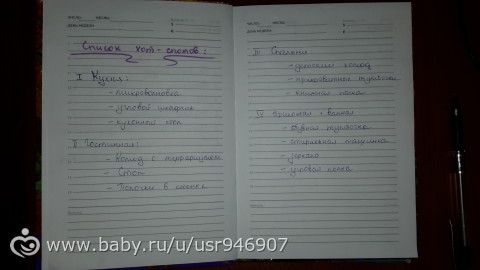 ЧИСЛО: МЕСЯЦ:
ДЕНЬ НЕДЕЛИ:
Список хот-спотов:
I Кухня:
- микроволновка
- угловой шкафчик
- кухонный стол
II Гостинная:
- комод с террариумом
- Стол
- Полочки в стенке
ЧИСЛО: МЕСЯЦ:
ДЕНЬ НЕДЕЛИ:
III Спальни
- детский комод
- прикроватные тумбочки
- книжная полка
IV Прихожая + ванная
- обувная тумбочка
- стиральная машинка
- зеркало
- угловая полка
www.baby.ru/u/usr946907